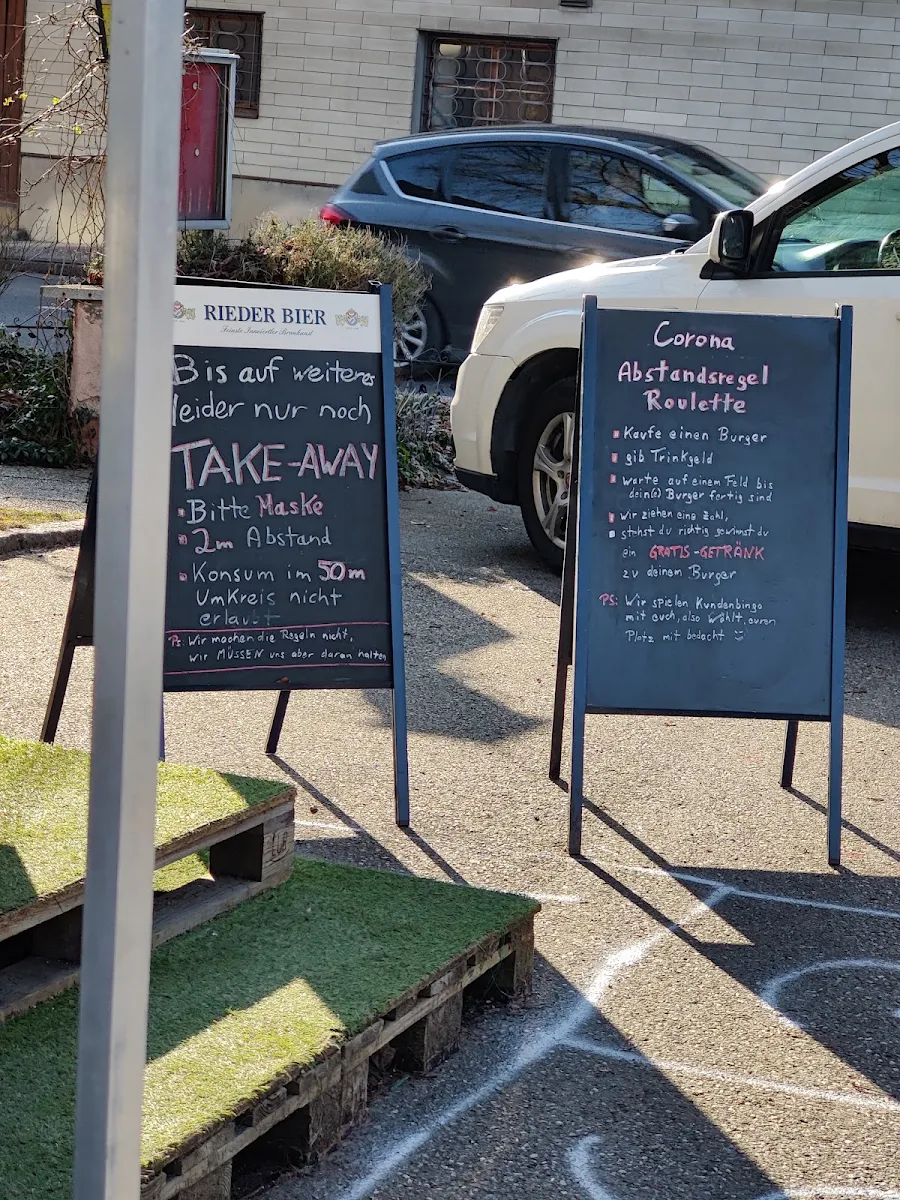 RIEDER BIER
Feinste Innviertler Braukunst
Bis auf weiteres
leider nur noch
TAKE-AWAY
Bitte Maske
2m Abstand
Konsum im 50m
Umkreis nicht
erlaubt
Ps: Wir machen die Regeln nicht,
wir MÜSSEN uns aber daran halten
Corona
Abstandsregel
Roulette
Kaufe einen Burger
gib Trinkgeld
warte auf einem Feld bis
dein(e) Burger fertig sind
wir ziehen eine Zahl,
stehst du richtig gewinnst du
ein GRATIS-GETRÄNK
zu deinem Burger
PS: Wir spielen Kundenbingo
mit euch, also wählt euren
Platz mit bedacht